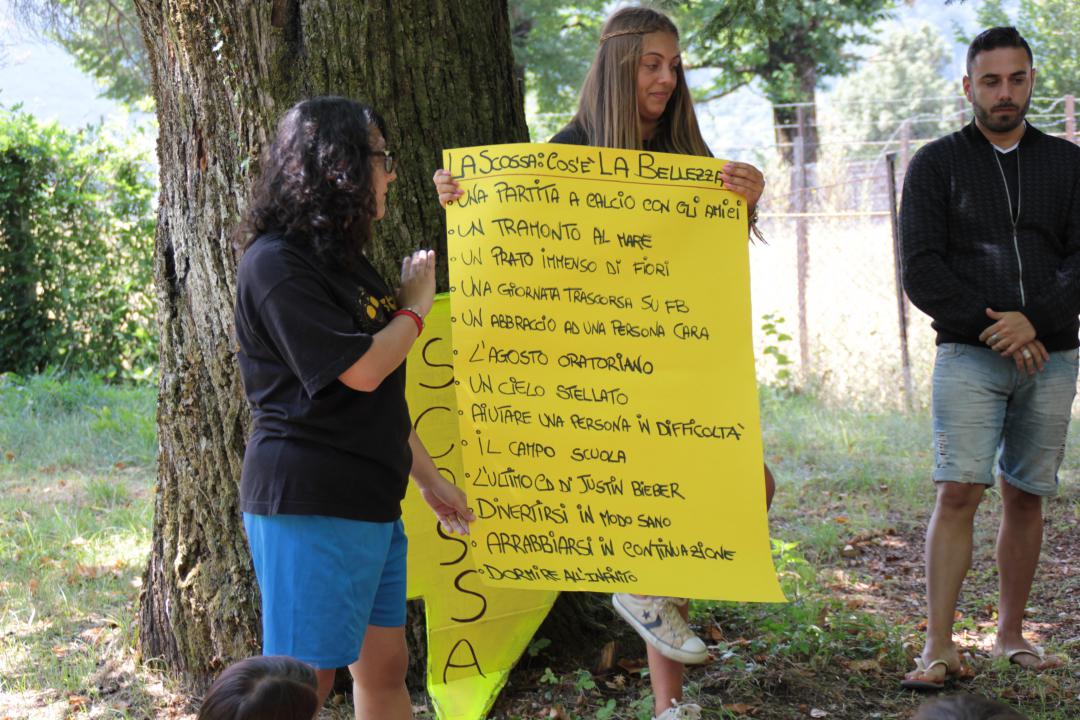 LA SCOSSA: COS'È LA BELLEZZA
• UNA PARTITA A CALCIO CON GLI AMICI
• UN TRAMONTO AL MARE
• UN PRATO IMMENSO DI FIORI
• UNA GIORNATA TRASCORSA SU FB
• UN ABBRACCIO AD UNA PERSONA CARA
• L'AGOSTO ORATORIANO
• UN CIELO STELLATO
• AIUTARE UNA PERSONA IN DIFFICOLTA'
• IL CAMPO SCUOLA
• L'ULTIMO CD DI JUSTIN BIEBER
• DIVERTIRSI IN MODO SANO
• ARRABBIARSI IN CONTINUAZIONE
• DORMIRE ALL'INFINITO
S
C
O
S
S
A